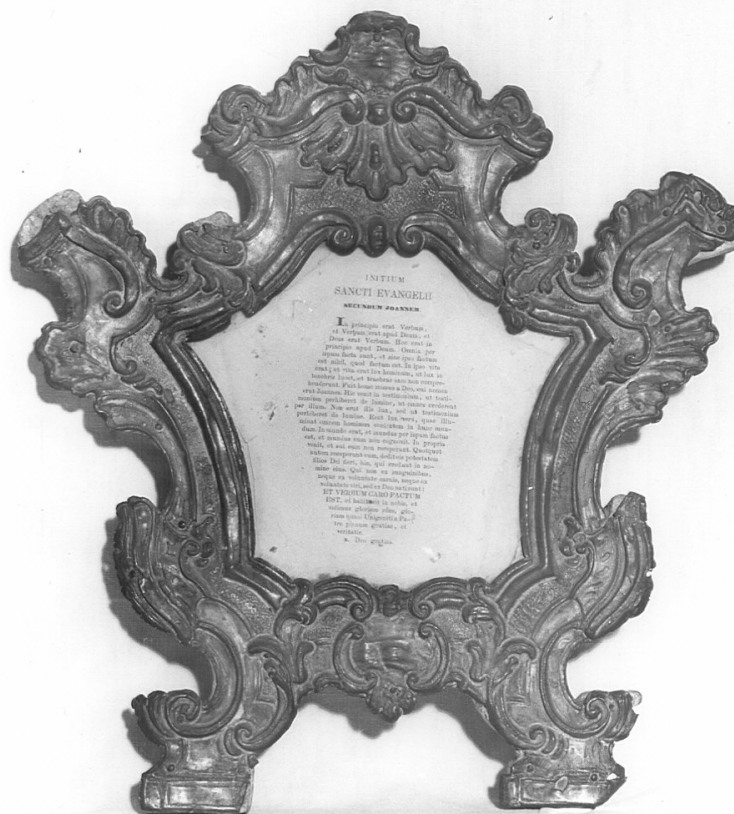 INITIUM
SANCTI EVANGELII
SECUNDUM JOANNEM
In principio erat Verbum,
et Verbum erat apud Deum, et
Deus erat Verbum. Hoc erat in
principio apud Deum. Omnia per
ipsum facta sunt, et sine ipso factum
est nihil, quod factum est. In ipso vita
erat; et vita erat lux hominum, et lux in
tenebris lucet, et tenebrae eam non compre-
henderunt. Fuit homo missus a Deo, cui nomen
erat Joannes. Hic venit in testimonium, ut testi-
monium perhiberet de lumine, ut omnes crederent
per illum. Non erat ille lux, sed ut testimonium
perhiberet de lumine. Erat lux vera, quae illu-
minat omnem hominem venientem in hunc mun-
dum. In mundo erat, et mundus per ipsum factus
est, et mundus eum non cognovit. In propria
venit, et sui eum non receperunt. Quotquot
autem receperunt eum, dedit eis potestatem
filios Dei fieri, his, qui credunt in no-
mine ejus. Qui non ex sanguinibus,
neque ex voluntate carnis, neque ex
voluntate viri, sed ex Deo nati sunt:
ET VERBUM CARO FACTUM
EST, et habitavit in nobis, et
vidimus gloriam ejus, glo-
riam quasi Unigeniti a Pa-
tre plenum gratiae, et
veritatis.
Deo gratias.